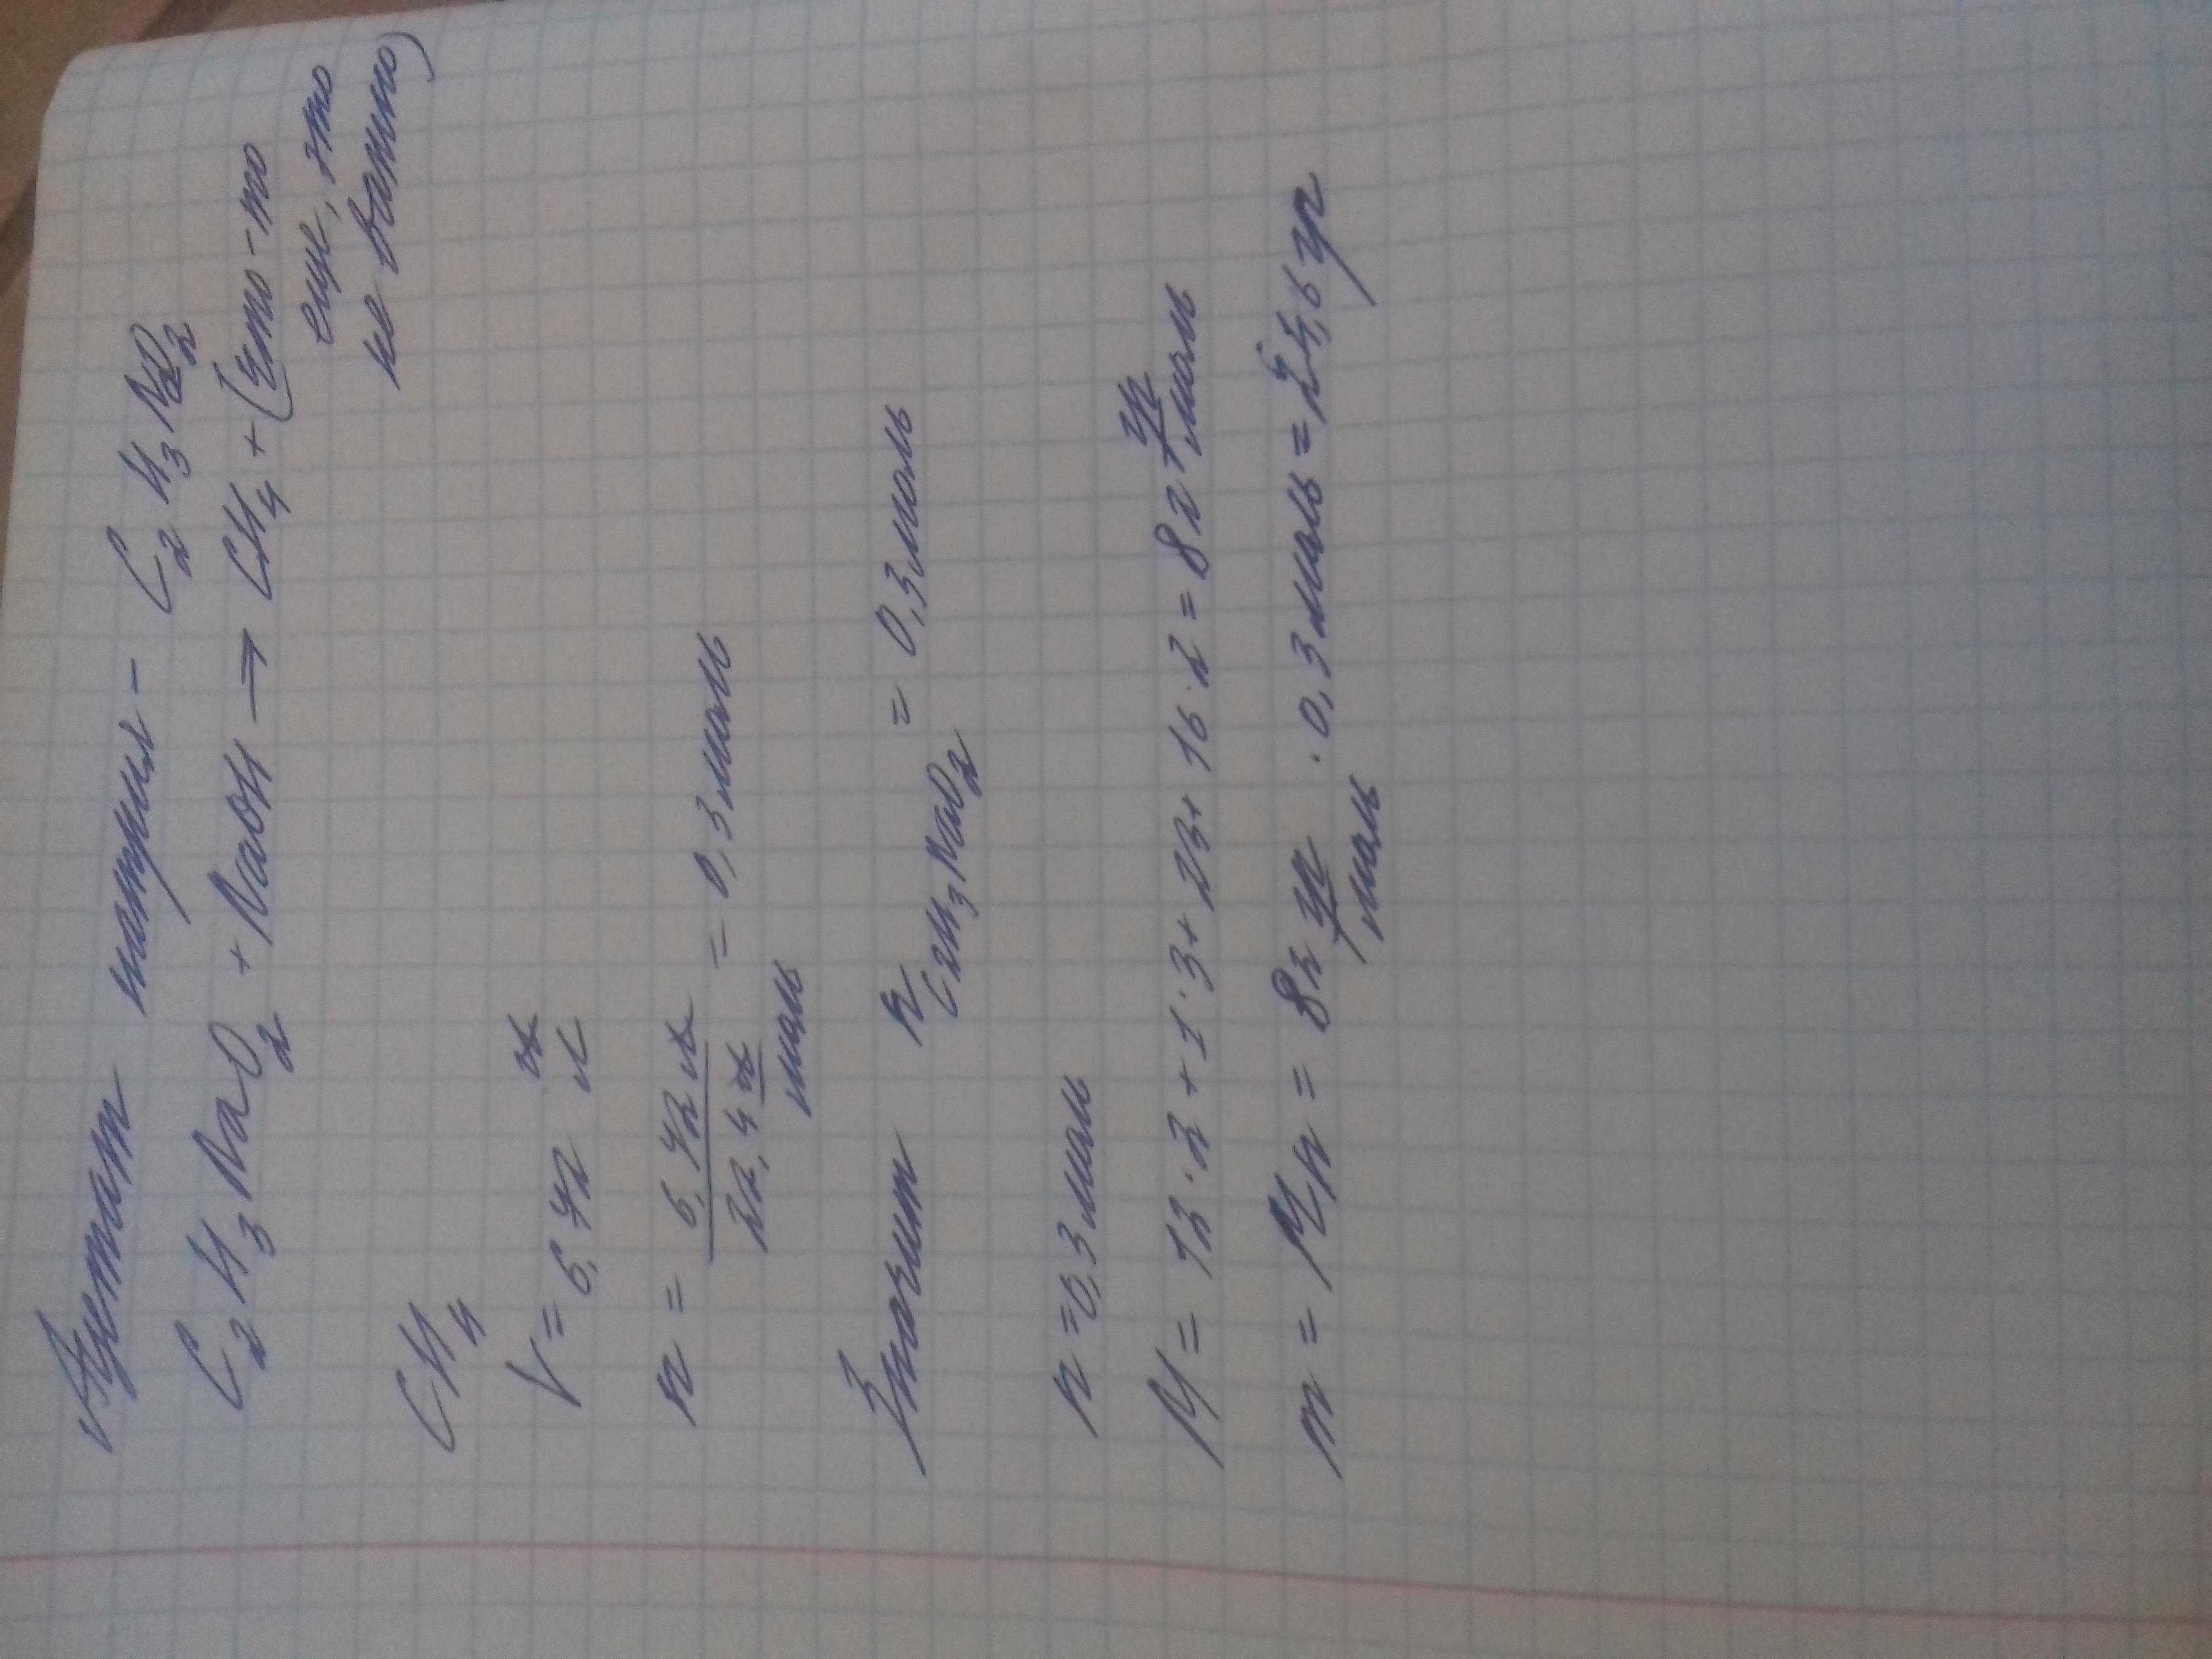 Ацетат натрия - C₂H₃NaO₂
C₂H₃NaO₂ + NaOH → CH₄ + (что-то
еще, это
не важно)
CH₄
V = 6,72 л
n = 6,72 л / 22,4 л/моль = 0,3 моль
Значит n C₂H₃NaO₂ = 0,3 моль
n = 0,3 моль
M = 12·2 + 1·3 + 23 + 16·2 = 82 гр/моль
m = Mn = 82 гр/моль · 0,3 моль = 24,6 гр